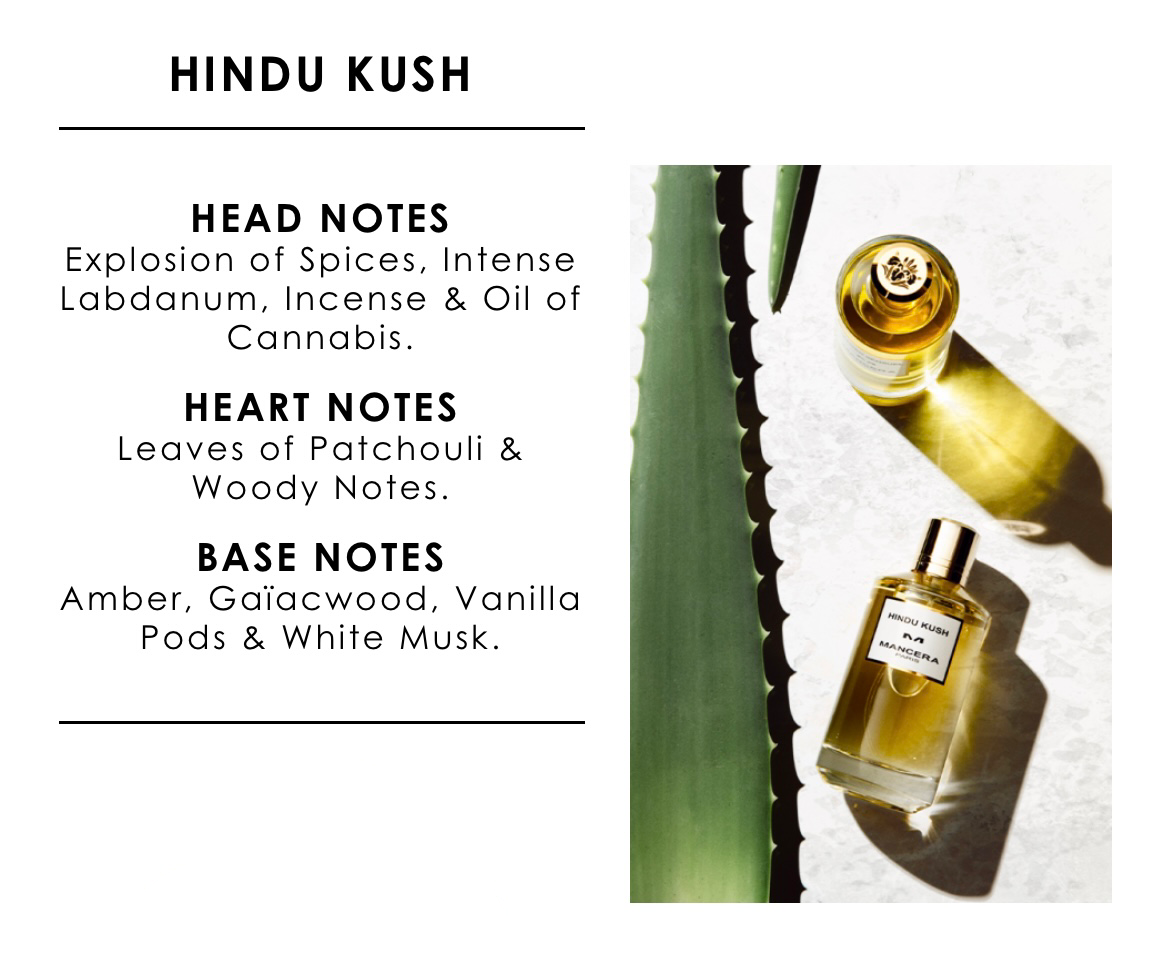 HINDU KUSH
HEAD NOTES
Explosion of Spices, Intense
Labdanum, Incense & Oil of
Cannabis.
HEART NOTES
Leaves of Patchouli &
Woody Notes.
BASE NOTES
Amber, Gaïacwood, Vanilla
Pods & White Musk.
HINDU KUSH
M
MANCERA
PARIS